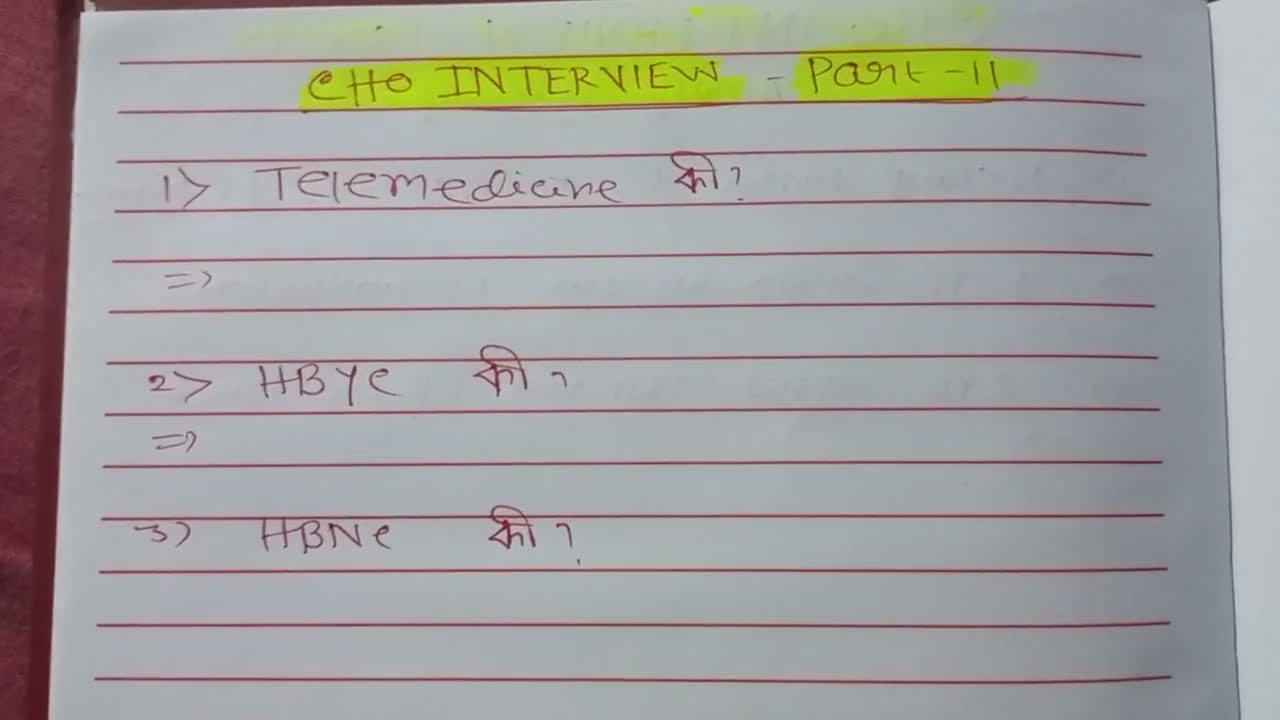 CHO INTERVIEW - Part -11
1> Telemedicine কী?
=>
2> HBYC কী?
=>
3) HBNC কী?